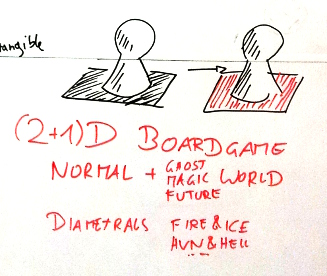 tangible
(2+1)D BOARDGAME
NORMAL + GHOST MAGIC FUTURE WORLD
DIAMETRALS FIRE & ICE
HVN & HELL